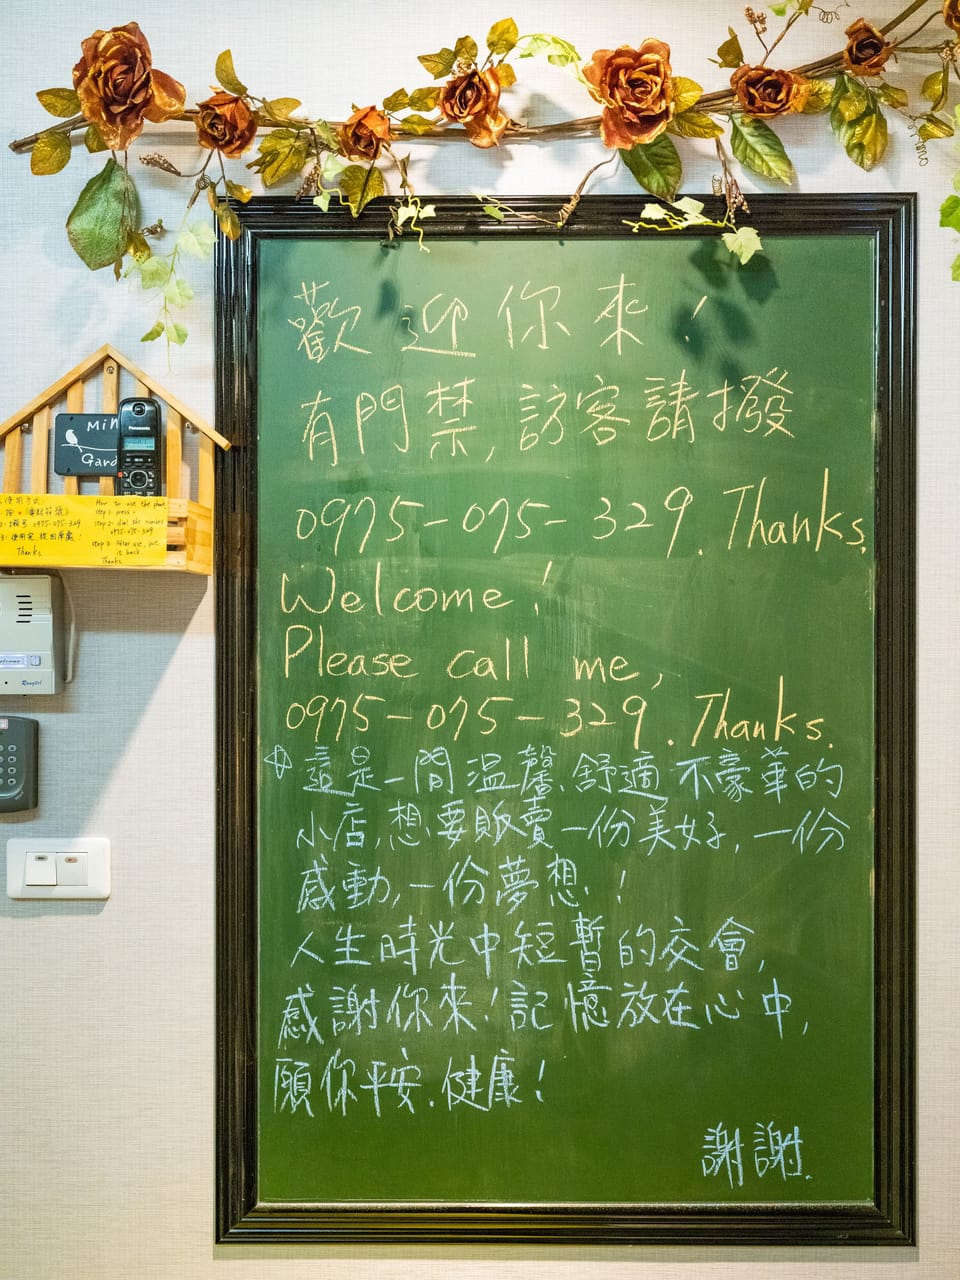 歡迎你來!
有門禁,訪客請撥
0975-075-329.Thanks.
Welcome!
Please call me,
0975-075-329.Thanks.
☆這是一間溫馨、舒適、不豪華的
小店,想要販賣一份美好,一份
感動,一份夢想!
人生時光中短暫的交會,
感謝你來!記憶放在心中,
願你平安、健康!
謝謝.
Panasonic
使用方式:
0975-075-329
Thanks
How to use the phone
step 1: press
step 2: dial the number
0975-075-329
step 3: After use, put
it back.
Thanks